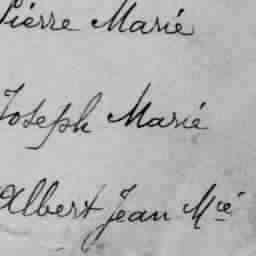 Pierre Marié
Joseph Marié
Albert Jean Mié